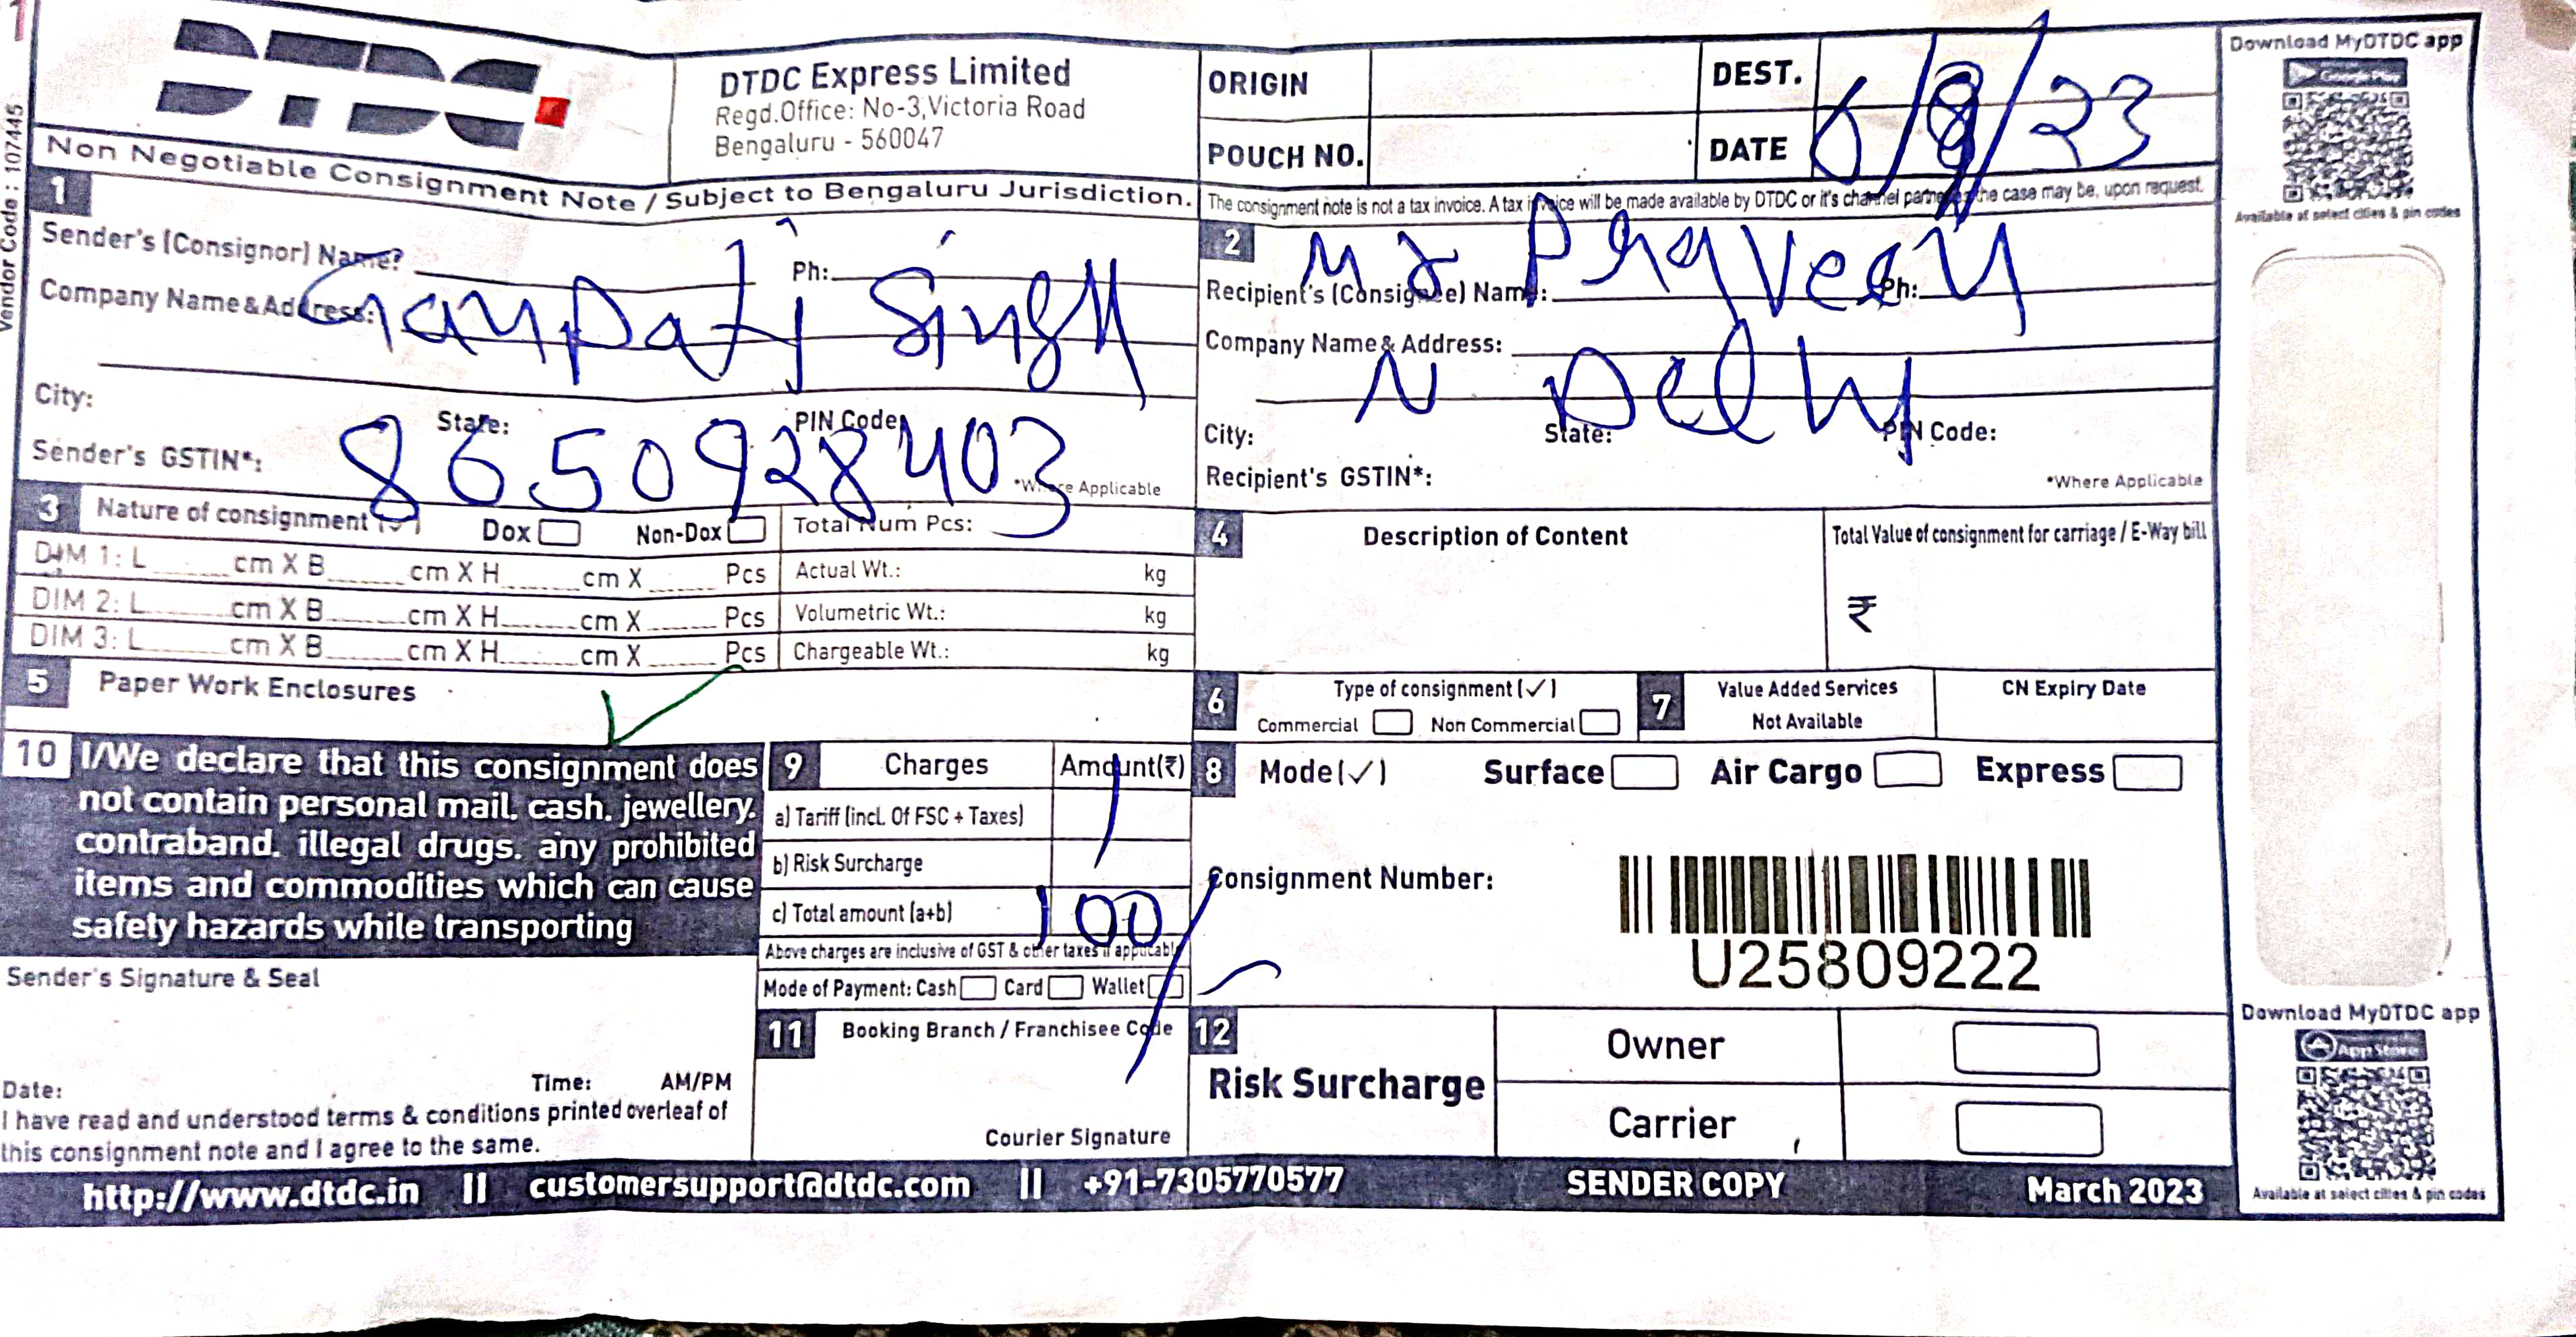 Vendor Code : 107445
DTDC
DTDC Express Limited
Regd.Office: No-3,Victoria Road
Bengaluru - 560047
Non Negotiable Consignment Note / Subject to Bengaluru Jurisdiction.
ORIGIN
DEST.
POUCH NO.
DATE 6/8/23
The consignment note is not a tax invoice. A tax invoice will be made available by DTDC or it's channel partner as the case may be, upon request.
1
Sender's (Consignor) Name?
Ph:
Company Name & Address:
Ganpati Singh
City:
State:
PIN Code
8650928403
Sender's GSTIN*:
*Where Applicable
2
Mr Praveen
Recipient's (Consignee) Name: Ph:
Company Name & Address:
N Delhi
City: State: PIN Code:
Recipient's GSTIN*:
*Where Applicable
3 Nature of consignment (✓) Dox Non-Dox
Total Num Pcs:
DIM 1: L cm X B cm X H cm X Pcs
Actual Wt.: kg
DIM 2: L cm X B cm X H cm X Pcs
Volumetric Wt.: kg
DIM 3: L cm X B cm X H cm X Pcs
Chargeable Wt.: kg
4 Description of Content
Total Value of consignment for carriage / E-Way bill
₹
5 Paper Work Enclosures
6 Type of consignment (✓)
Commercial Non Commercial
7 Value Added Services
Not Available
CN Expiry Date
10 I/We declare that this consignment does
not contain personal mail, cash, jewellery,
contraband, illegal drugs, any prohibited
items and commodities which can cause
safety hazards while transporting
9 Charges Amount(₹)
a) Tariff (incl. Of FSC + Taxes)
b) Risk Surcharge
c) Total amount (a+b) 100/
Above charges are inclusive of GST & other taxes if applicable
Mode of Payment: Cash Card Wallet
8 Mode(✓) Surface Air Cargo Express
Consignment Number:
U25809222
Sender's Signature & Seal
Date: Time: AM/PM
I have read and understood terms & conditions printed overleaf of
this consignment note and I agree to the same.
11 Booking Branch / Franchisee Code
Courier Signature
12
Risk Surcharge
Owner
Carrier
http://www.dtdc.in || customersupport@dtdc.com || +91-7305770577
SENDER COPY
March 2023
Download MyDTDC app
Google Play
Available at select cities & pin codes
Download MyDTDC app
App Store
Available at select cities & pin codes